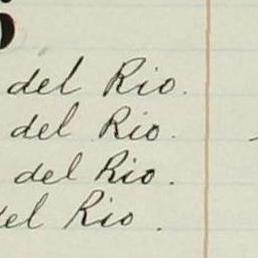 del Rio.
del Rio.
del Rio.
del Rio.